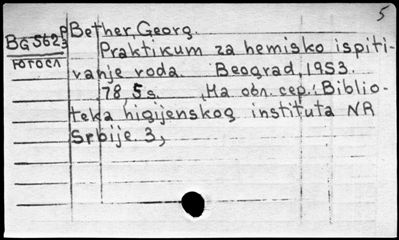 5
BG5623
Bether, Georg.
Praktikum za hemisko ispiti-
vanje voda. Beograd, 1953.
78, 5 s. На обл. сер.: Biblio-
teka higijenskog instituta NR
Srbije. 3,